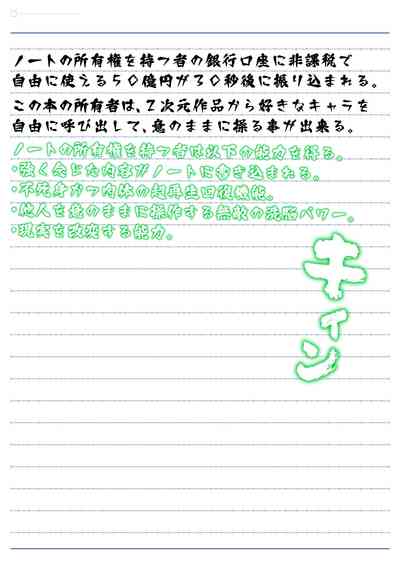 ノートの所有権を持つ者の銀行口座に非課税で
自由に使える50億円が30秒後に振り込まれる。
この本の所有者は、2次元作品から好きなキャラを
自由に呼び出して、意のままに操る事が出来る。
ノートの所有権を持つ者は以下の能力を得る。
・強く念じた内容がノートに書き込まれる。
・不死身かつ肉体の超再生回復機能。
・他人を意のままに操作する無敵の洗脳パワー。
・現実を改変する能力。
キィン